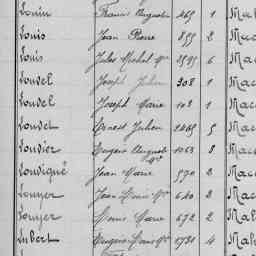 Louin Francis Auguste 465 1 Ma
Louis Jean Pierre 855 2 Mac
Louis Jules Michel 2595 6 Mac
Louvel Joseph Julien 308 1 Mac
Louvel Joseph Marie 102 1 Mac
Louvel Ernest Julien 2465 5 Mac
Louvier Eugène August 1063 8 Mac
Louvigné Jean Marie 590 2 Mac
Louyer Jean 640 2 Mac
Louyer Marie 672 2 Mal
Lubert Eugène 1731 4 Mal